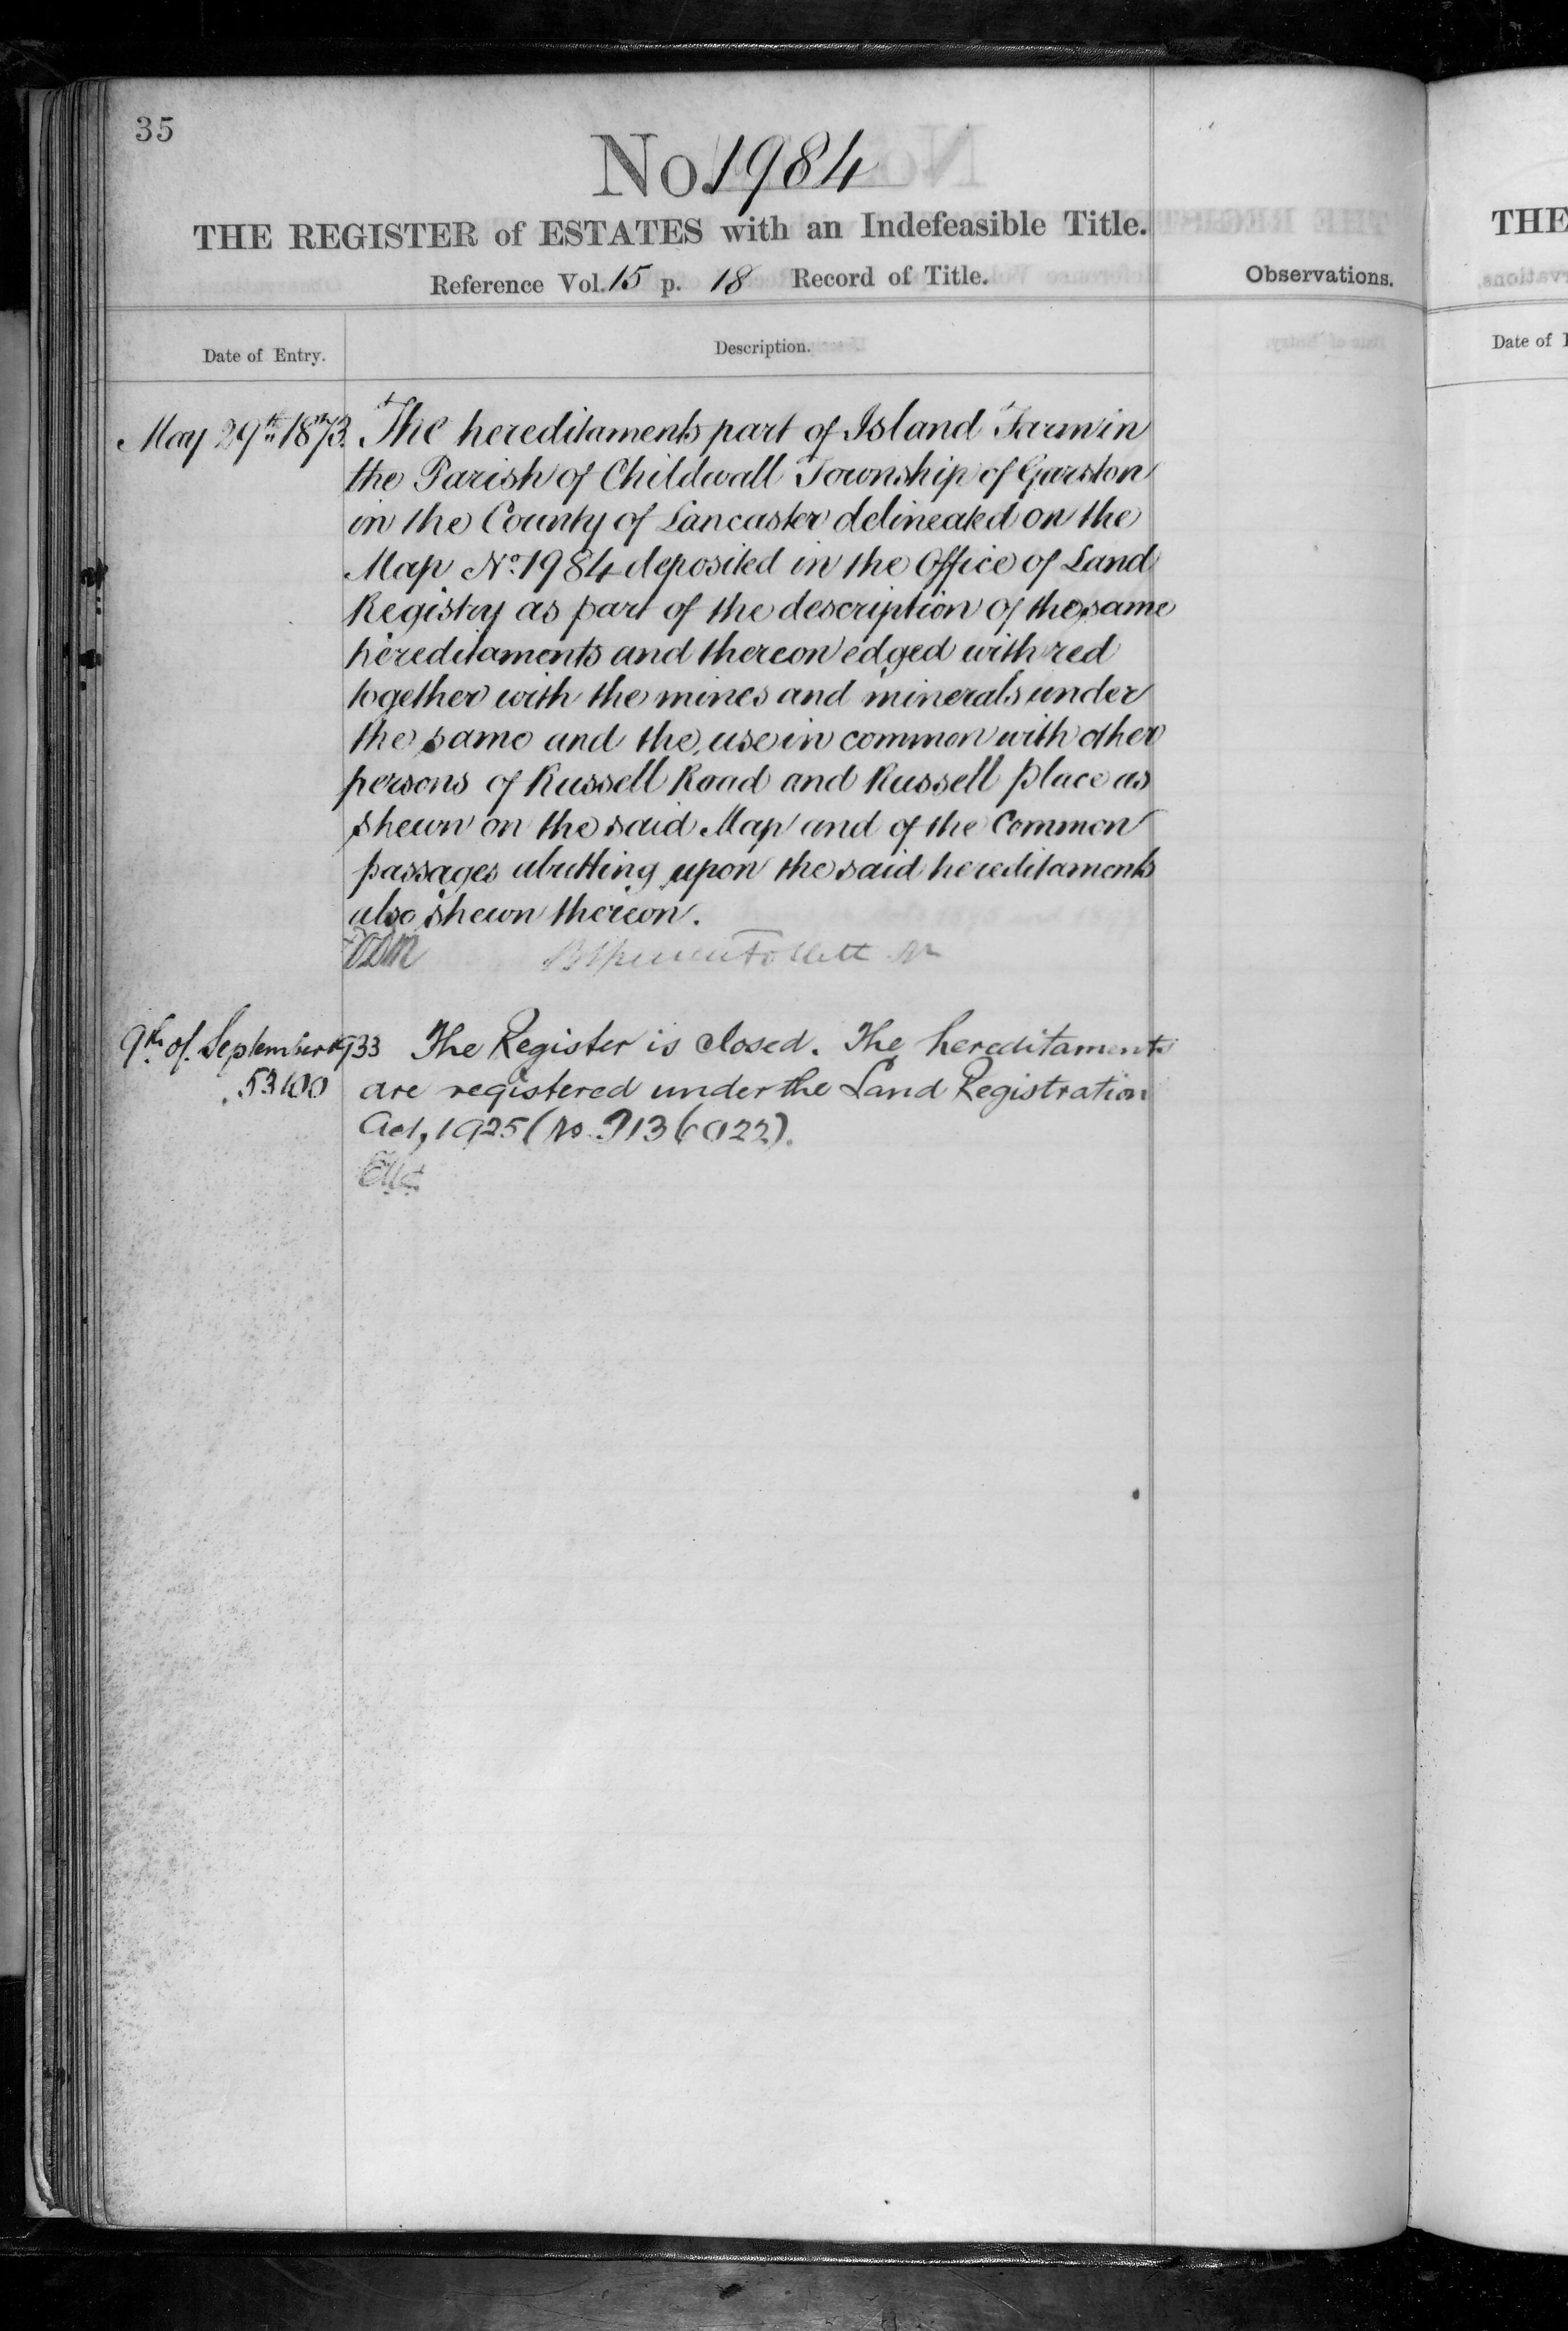 35
No. 1984
THE REGISTER of ESTATES with an Indefeasible Title.
Reference Vol. 15 p. 18 Record of Title.
Observations.
Date of Entry.
Description.
May 29th 1873. The hereditaments part of Island Farm in
the Parish of Childwall Township of Garston
in the County of Lancaster delineated on the
Map No. 1984 deposited in the Office of Land
Registry as part of the description of the same
hereditaments and thereon edged with red
together with the mines and minerals under
the same and the use in common with other
persons of Russell Road and Russell Place as
shewn on the said Map and of the Common
passages abutting upon the said hereditaments
also shewn thereon.
Follett
9th of September 1933 The Register is closed. The hereditaments
are registered under the Land Registration
Act, 1925 (No.
THE
Date of